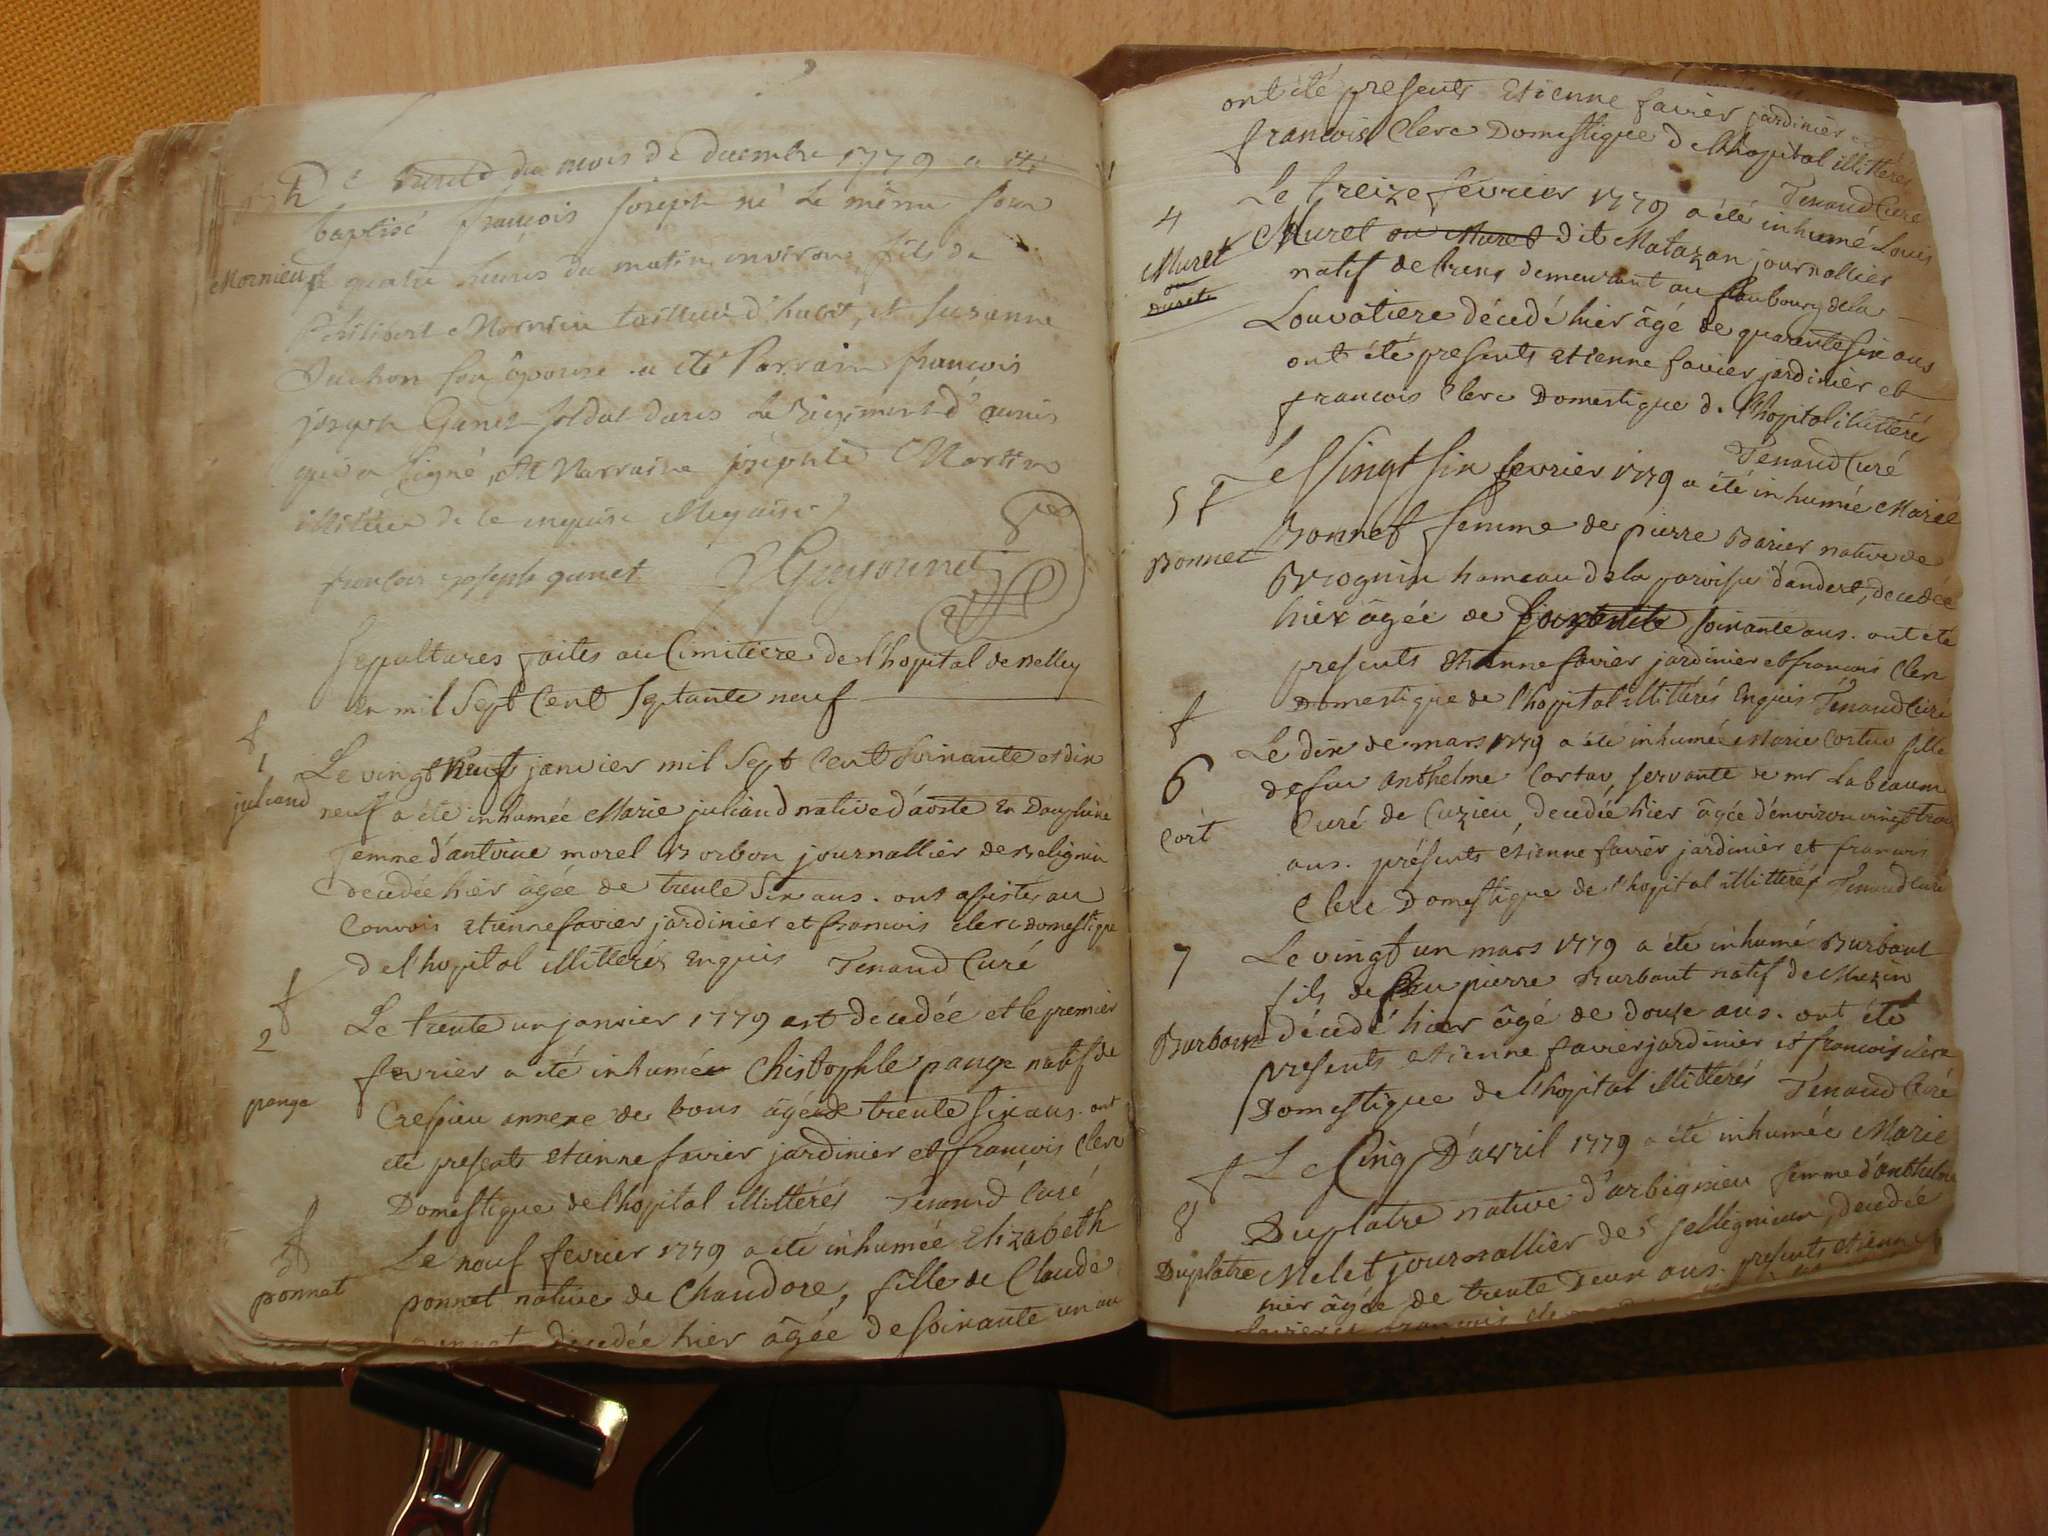 du mois de decembre 1779 a été
baptisé françois joseph né le même jour
Mornieu
a quatre heures du matin environ fils de
Philibert Mornieu tailleur d'habit, et Susanne
son épouse. a été Parrain françois
joseph Ganet soldat dans le Regiment d'aunis
qui a signé, et Marraine josephte Martin
illiterée de ce enquise
francois joseph ganet
Sepultures faites au Cimitiere de l'hopital de Belley
en mil Sept Cent Septante neuf
1
juliand
Le vingt neuf janvier mil Sept Cent Soixante et dix
neuf a été inhumée Marie juliand native d'aoste en Dauphiné
femme d'antoine morel Borbon journallier de Belignin
decedée hier âgée de trente Six ans. ont assistés au
Convois etienne favier jardinier et francois clerc domestique
de l'hopital illitterés enquis Tenand Curé
2
pange
Le trente un janvier 1779 est décedée et le premier
fevrier a été inhumée Christophle pange natif de
Crespieu annexe de bons âgé de trente Six ans. ont
été presents etienne favier jardinier et francois Clerc
Domestique de l'hopital illitterés Tenand Curé
3
ponnet
Le neuf fevrier 1779 a été inhumée Elizabeth
ponnet native de Chandore, fille de Claude
ponnet decedée hier âgée de soixante un an
ont été presents etienne favier jardinier et
francois Clerc Domestique de l'hopital illitterés
Tenand Curé
4
Muret
ou
Le treize fevrier 1779 a été inhumé Louis
Muret ou Muret dit Matazan journallier
natif de demeurant au faubourg de la
Louvatiere décedé hier âgé de quarante six ans
ont été presents etienne favier jardinier et
francois Clerc Domestique de l'hopital illitterés
Tenand Curé
5
Bonnet
Le vingt six fevrier 1779 a été inhumée Marie
Bonnet femme de pierre Barier native de
Brognin hameau de la paroisse d'andert, decedée
hier âgée de soixante ans. ont été
presents etienne favier jardinier et francois Clerc
Domestique de l'hopital illitterés enquis Tenand Curé
6
Cort
Le dix de mars 1779 a été inhumée Marie Cortav fille
de feu anthelme Cortav, servante de mr Labeaume
Curé de Cuzieu, decedée hier âgée d'environ vingt trois
ans. présents etienne favier jardinier et francois
Clerc Domestique de l'hopital illitterés Tenand Curé
7
Burbaut
Le vingt un mars 1779 a été inhumé Burbaut
fils de feu pierre Burbaut natif de Mezin
décedé hier âgé de douze ans. ont été
presents etienne favier jardinier et francois clerc
Domestique de l'hopital illitterés Tenand Curé
8
Duplatre
Le Cinq D'avril 1779 a été inhumée Marie
Duplatre native d'arbignieu femme d'anthelme
Melet journallier de Sellignieu, decedée
hier âgée de trente Deux ans. presents etienne
favier et francois